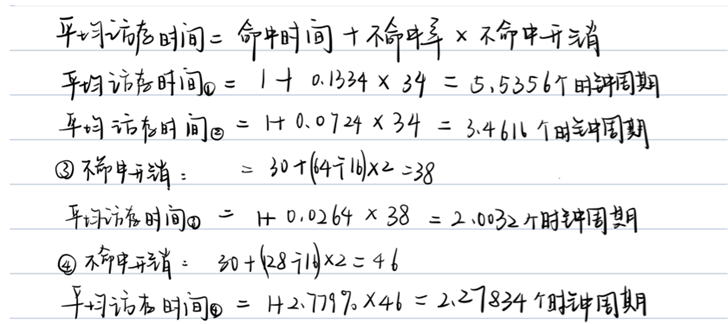 平均访存时间 = 命中时间 + 不命中率 × 不命中开销
平均访存时间① = 1 + 0.1334 × 34 = 5.5356个时钟周期
平均访存时间② = 1+ 0.0724 × 34 = 3.4616个时钟周期
③ 不命中开销: = 30+(64÷16)×2=38
平均访存时间③ = 1+ 0.0264 × 38 = 2.0032个时钟周期
④ 不命中开销: 30+(128÷16)×2=46
平均访存时间④ = 1+2.779%×46 = 2.27834个时钟周期